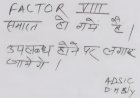 FACTOR VIII
समाप्त हो गये है ।
उपलब्ध होने पर लगाए
जायेगे ।
ADSIC